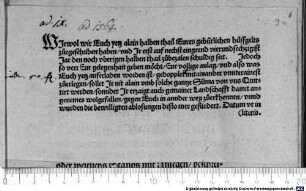 ad ix.
ad 1564.
Wiewol wir Euch yetz alain halben thail Eures gebürlichen hilffgelts
zůegeschriben haben / vnd Ir erst auf nechst eingeend vierundsechtzigist
Jar den noch vberigen halben thail zůbezalen schuldig set. Jedoch
so ver Ir gelegenhait geben möcht / Eur völlige anlag / vnd also was
Euch yetz auferladen worden ist / gedoppelt mit ainander vnnterainest
zůerlegen / sollet Ir nit alain vmb solche gantze Suma von vns Quit-
tiert werden / sonder Ir erzaigt auch gemainer Landschafft damit ain
genemes wolgefallen / gegen Euch in annder weg zůerkhennen / vnnd
wurden die bewilligten ablosungen desto mer gefürdert. Datum vt in
literis.